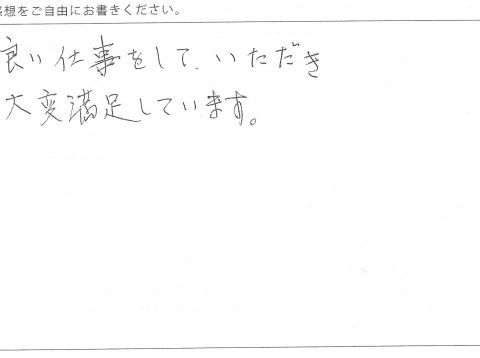 感想をご自由にお書きください。
良い仕事をして、いただき
大変満足しています。